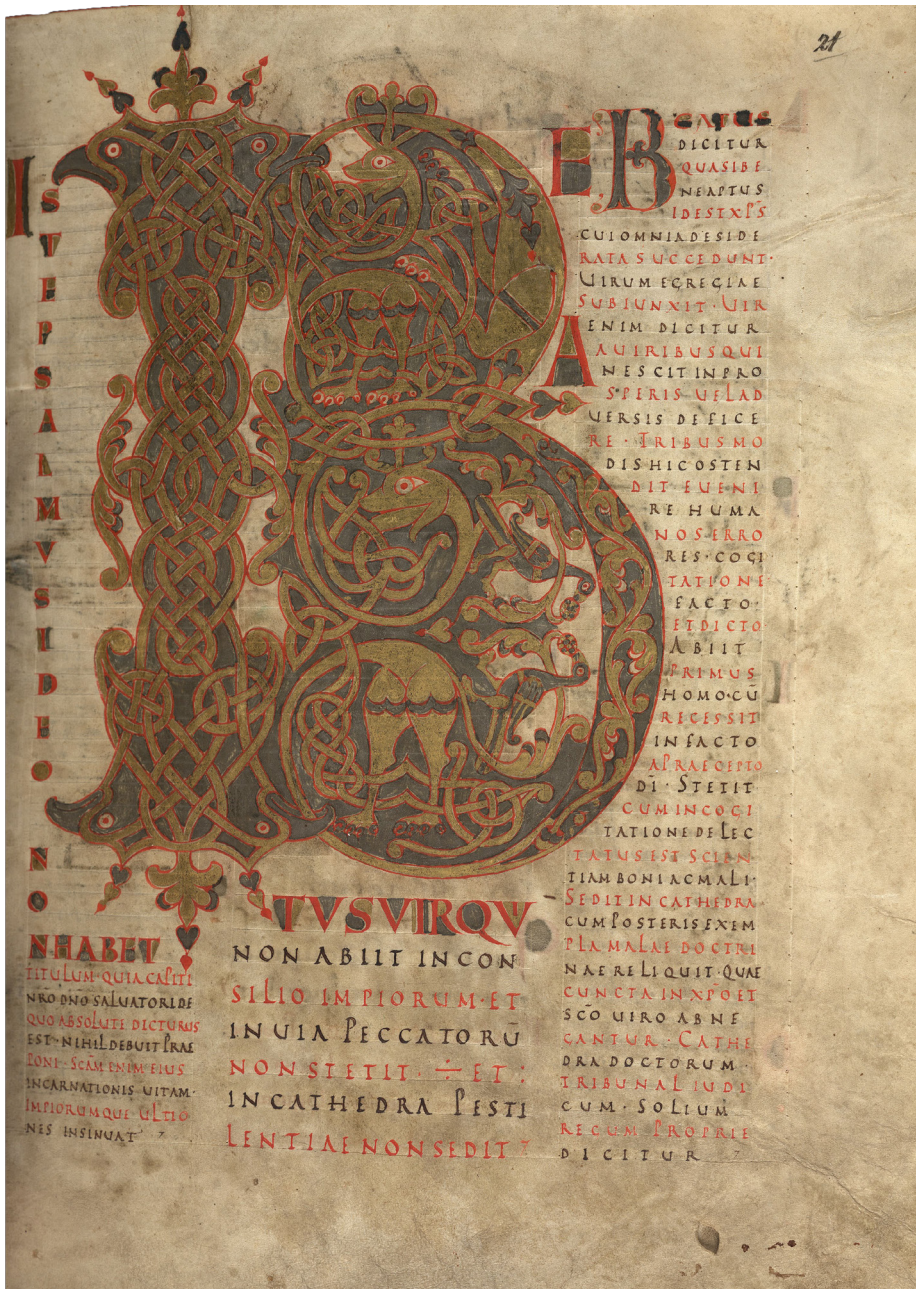 21
ISTEPSALMVSIDEO
NO
NHABET
TITULUM·QUIA CAPITI
NRO DNO SALUATORI DE
QUO ABSOLUTE DICTURUS
EST·NIHIL DEBUIT PRAE
PONI·SCAM ENIM EIUS
INCARNATIONIS UITAM·
IMPIORUMQUE ULTIO
NES INSINUAT
B
E
A
TVSVIRQV
NON ABIIT IN CON
SILIO IMPIORUM·ET
IN UIA PECCATORŪ
NON STETIT ·÷ ET :
IN CATHEDRA PESTI
LENTIAE NON SEDIT
BEATUS
DICITUR
QUASI BE
NE APTUS
ID EST XPS
CUI OMNIA DESIDE
RATA SUCCEDUNT·
UIRUM EGREGIAE
SUBIUNXIT·UIR
ENIM DICITUR
A UIRIBUS QUI
NESCIT IN PRO
SPERIS UEL AD
UERSIS DEFICE
RE·TRIBUS MO
DIS HIC OSTEN
DIT EUENI
RE HUMA
NOS ERRO
RES·COGI
TATIONE
FACTO·
ET DICTO
ABIIT
PRIMUS
HOMO·CŪ
RECESSIT
IN FACTO
A PRAECEPTO
DĪ·STETIT
CUM IN COGI
TATIONE DELEC
TATUS EST SCIEN
TIAM BONI AC MALI·
SEDIT IN CATHEDRA
CUM POSTERIS EXEM
PLA MALAE DOCTRI
NAE RELIQUIT·QUAE
CUNCTA IN XPO ET
SCO UIRO ABNE
GANTUR·CATHE
DRA DOCTORUM·
TRIBUNAL IUDI
CUM·SOLIUM
REGUM PROPRIE
DICITUR